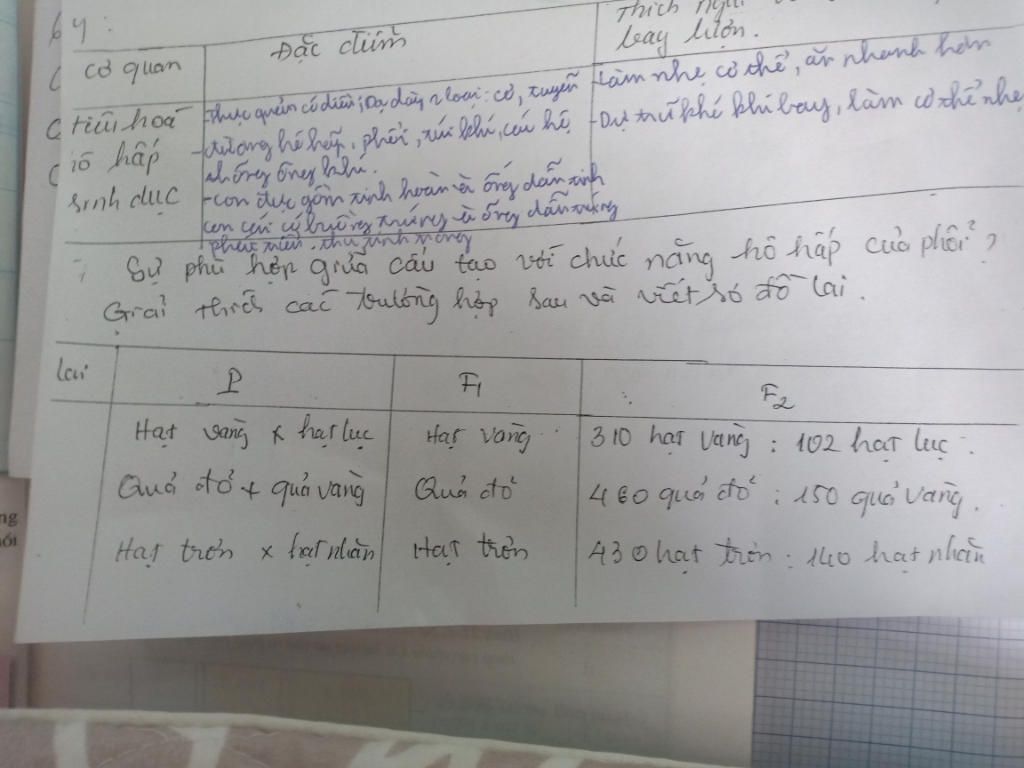 Đặc điểm
bay lượn.
cơ quan
tiêu hoá
- thực quản có diều; Dạ dày 2 loại: cơ, tuyến
- Làm nhẹ cơ thể, ăn nhanh hơn
hô hấp
phổi, túi khí,
- Dự trữ khí khi bay, làm cơ thể nhẹ
ống khí.
sinh dục
- con đực gồm tinh hoàn và ống dẫn tinh
con cái có buồng trứng và ống dẫn trứng
thụ tinh trong
Sự phù hợp giữa cấu tạo với chức năng hô hấp của phổi?
Giải thích các trường hợp sau và viết sơ đồ lai.
Lai P F1 F2
Hạt vàng x hạt lục Hạt vàng 310 hạt vàng : 102 hạt lục.
Quả đỏ + quả vàng Quả đỏ 460 quả đỏ : 150 quả vàng.
Hạt trơn x hạt nhăn Hạt trơn 430 hạt trơn : 140 hạt nhăn